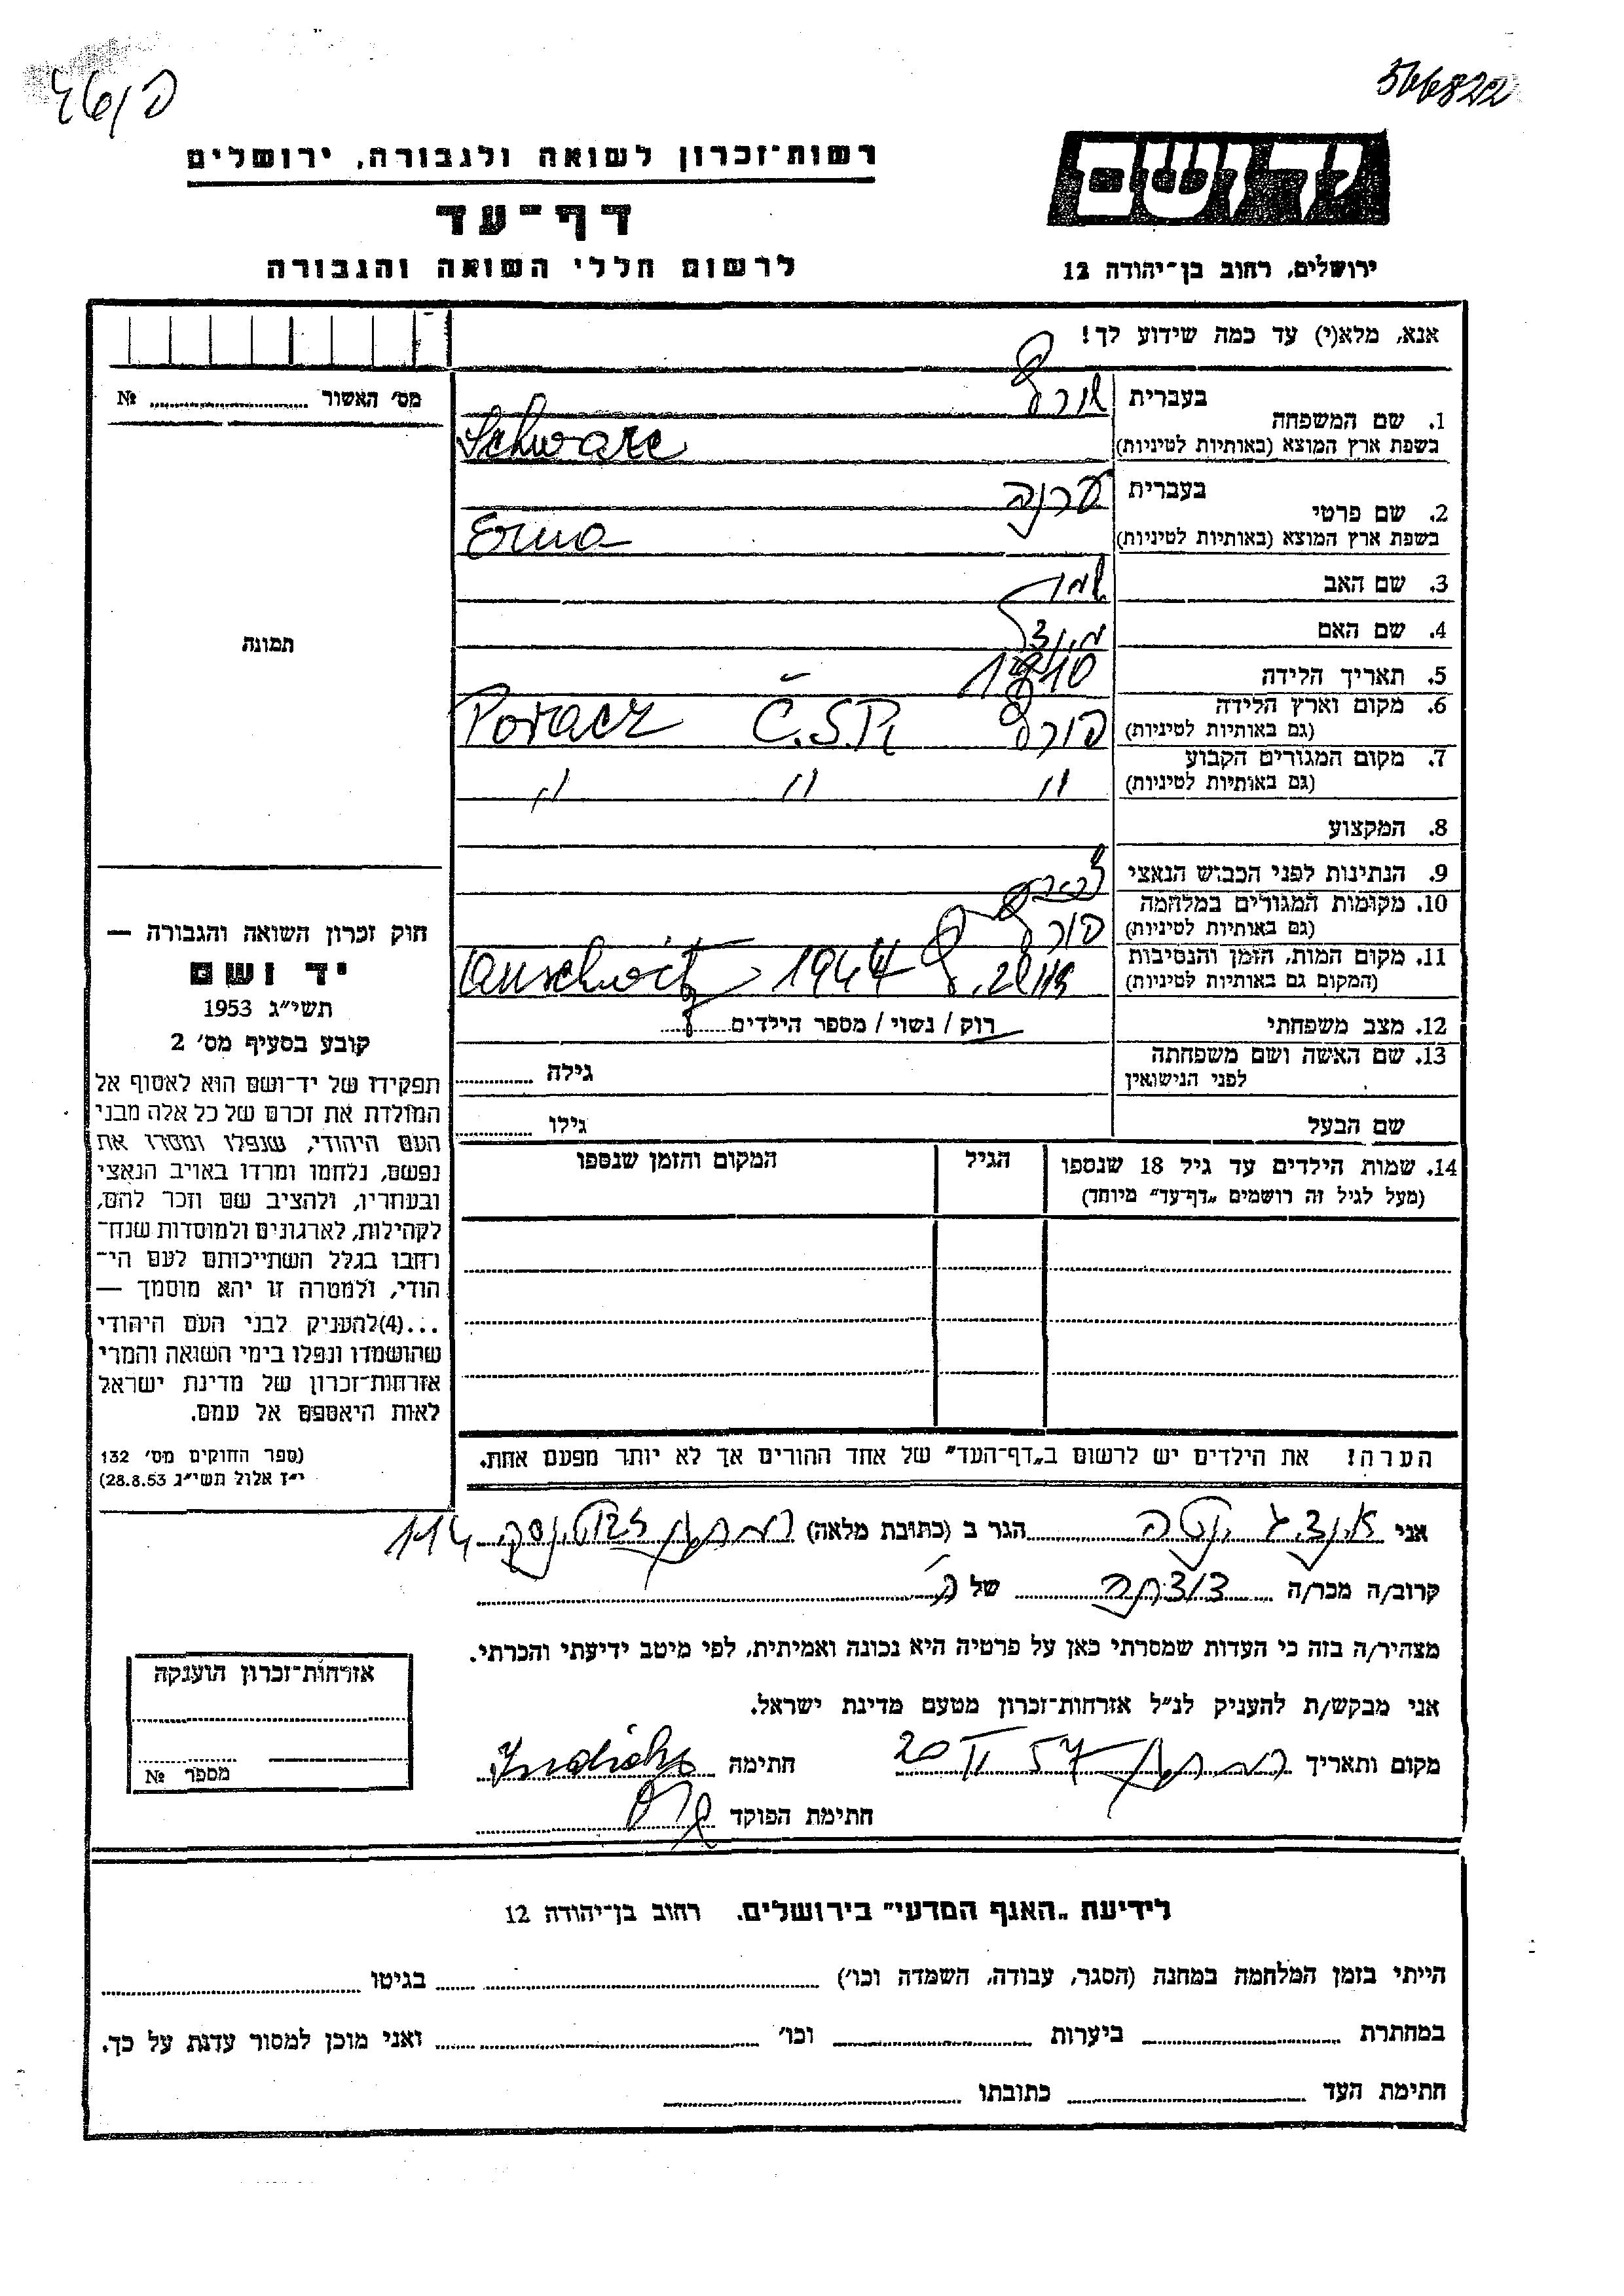 566822
יד ושם
ירושלים, רחוב בן־יהודה 12
רשות־זכרון לשואה ולגבורה, ירושלים
דף־עד
לרשום חללי השואה והגבורה
אנא, מלא(י) עד כמה שידוע לך!
מס׳ האשור № ........
1. שם המשפחה
בעברית
בשפת ארץ המוצא (באותיות לטיניות) Schwarc
2. שם פרטי
בעברית ערנה
בשפת ארץ המוצא (באותיות לטיניות) Erna
3. שם האב
4. שם האם
5. תאריך הלידה 1910
6. מקום וארץ הלידה
(גם באותיות לטיניות) Poracz Č.S.R.
7. מקום המגורים הקבוע
(גם באותיות לטיניות) " " "
8. המקצוע
9. הנתינות לפני הכבוש הנאצי
10. מקומות המגורים במלחמה
(גם באותיות לטיניות)
11. מקום המות, הזמן והנסיבות
(המקום גם באותיות לטיניות) 1944 Auschwitz
12. מצב משפחתי רוק / נשוי / מספר הילדים ........
13. שם האשה ושם משפחתה
לפני הנישואין גילה ........
שם הבעל גילו ........
14. שמות הילדים עד גיל 18 שנספו
(מעל לגיל זה רושמים „דף־עד" מיוחד)
הגיל
המקום והזמן שנספו
הערה: את הילדים יש לרשום ב„דף־העד" של אחד ההורים אך לא יותר מפעם אחת.
תמונה
חוק זכרון השואה והגבורה —
יד ושם
תשי״ג 1953
קובע בסעיף מס׳ 2
תפקידו של יד־ושם הוא לאסוף אל
המולדת את זכרם של כל אלה מבני
העם היהודי, שנפלו ומסרו את
נפשם, נלחמו ומרדו באויב הנאצי
ובעוזריו, ולהציב שם וזכר להם,
לקהילות, לארגונים ולמוסדות שנח־
רבו בגלל השתייכותם לעם הי־
הודי, ולמטרה זו יהא מוסמך —
...(4)להעניק לבני העם היהודי
שהושמדו ונפלו בימי השואה והמרי
אזרחות־זכרון של מדינת ישראל
לאות היאספם אל עמם.
(ספר החוקים מס׳ 132
י״ז אלול תשי״ג 28.8.53)
אני ........ הגר ב (כתובת מלאה) ........ 114
קרוב/ה מכר/ה ........ של ........
מצהיר/ה בזה כי העדות שמסרתי כאן על פרטיה היא נכונה ואמיתית, לפי מיטב ידיעתי והכרתי.
אני מבקש/ת להעניק לנ״ל אזרחות־זכרון מטעם מדינת ישראל.
מקום ותאריך 20 II 57 חתימה
חתימת הפוקד
אזרחות־זכרון הוענקה
מספר №
לידיעת „האגף המדעי" בירושלים. רחוב בן־יהודה 12
הייתי בזמן המלחמה במחנה (הסגר, עבודה, השמדה וכו׳) ........ בגיטו ........
במחתרת ........ ביערות ........ וכו׳ ........ ואני מוכן למסור עדות על כך.
חתימת העד ........ כתובתו ........